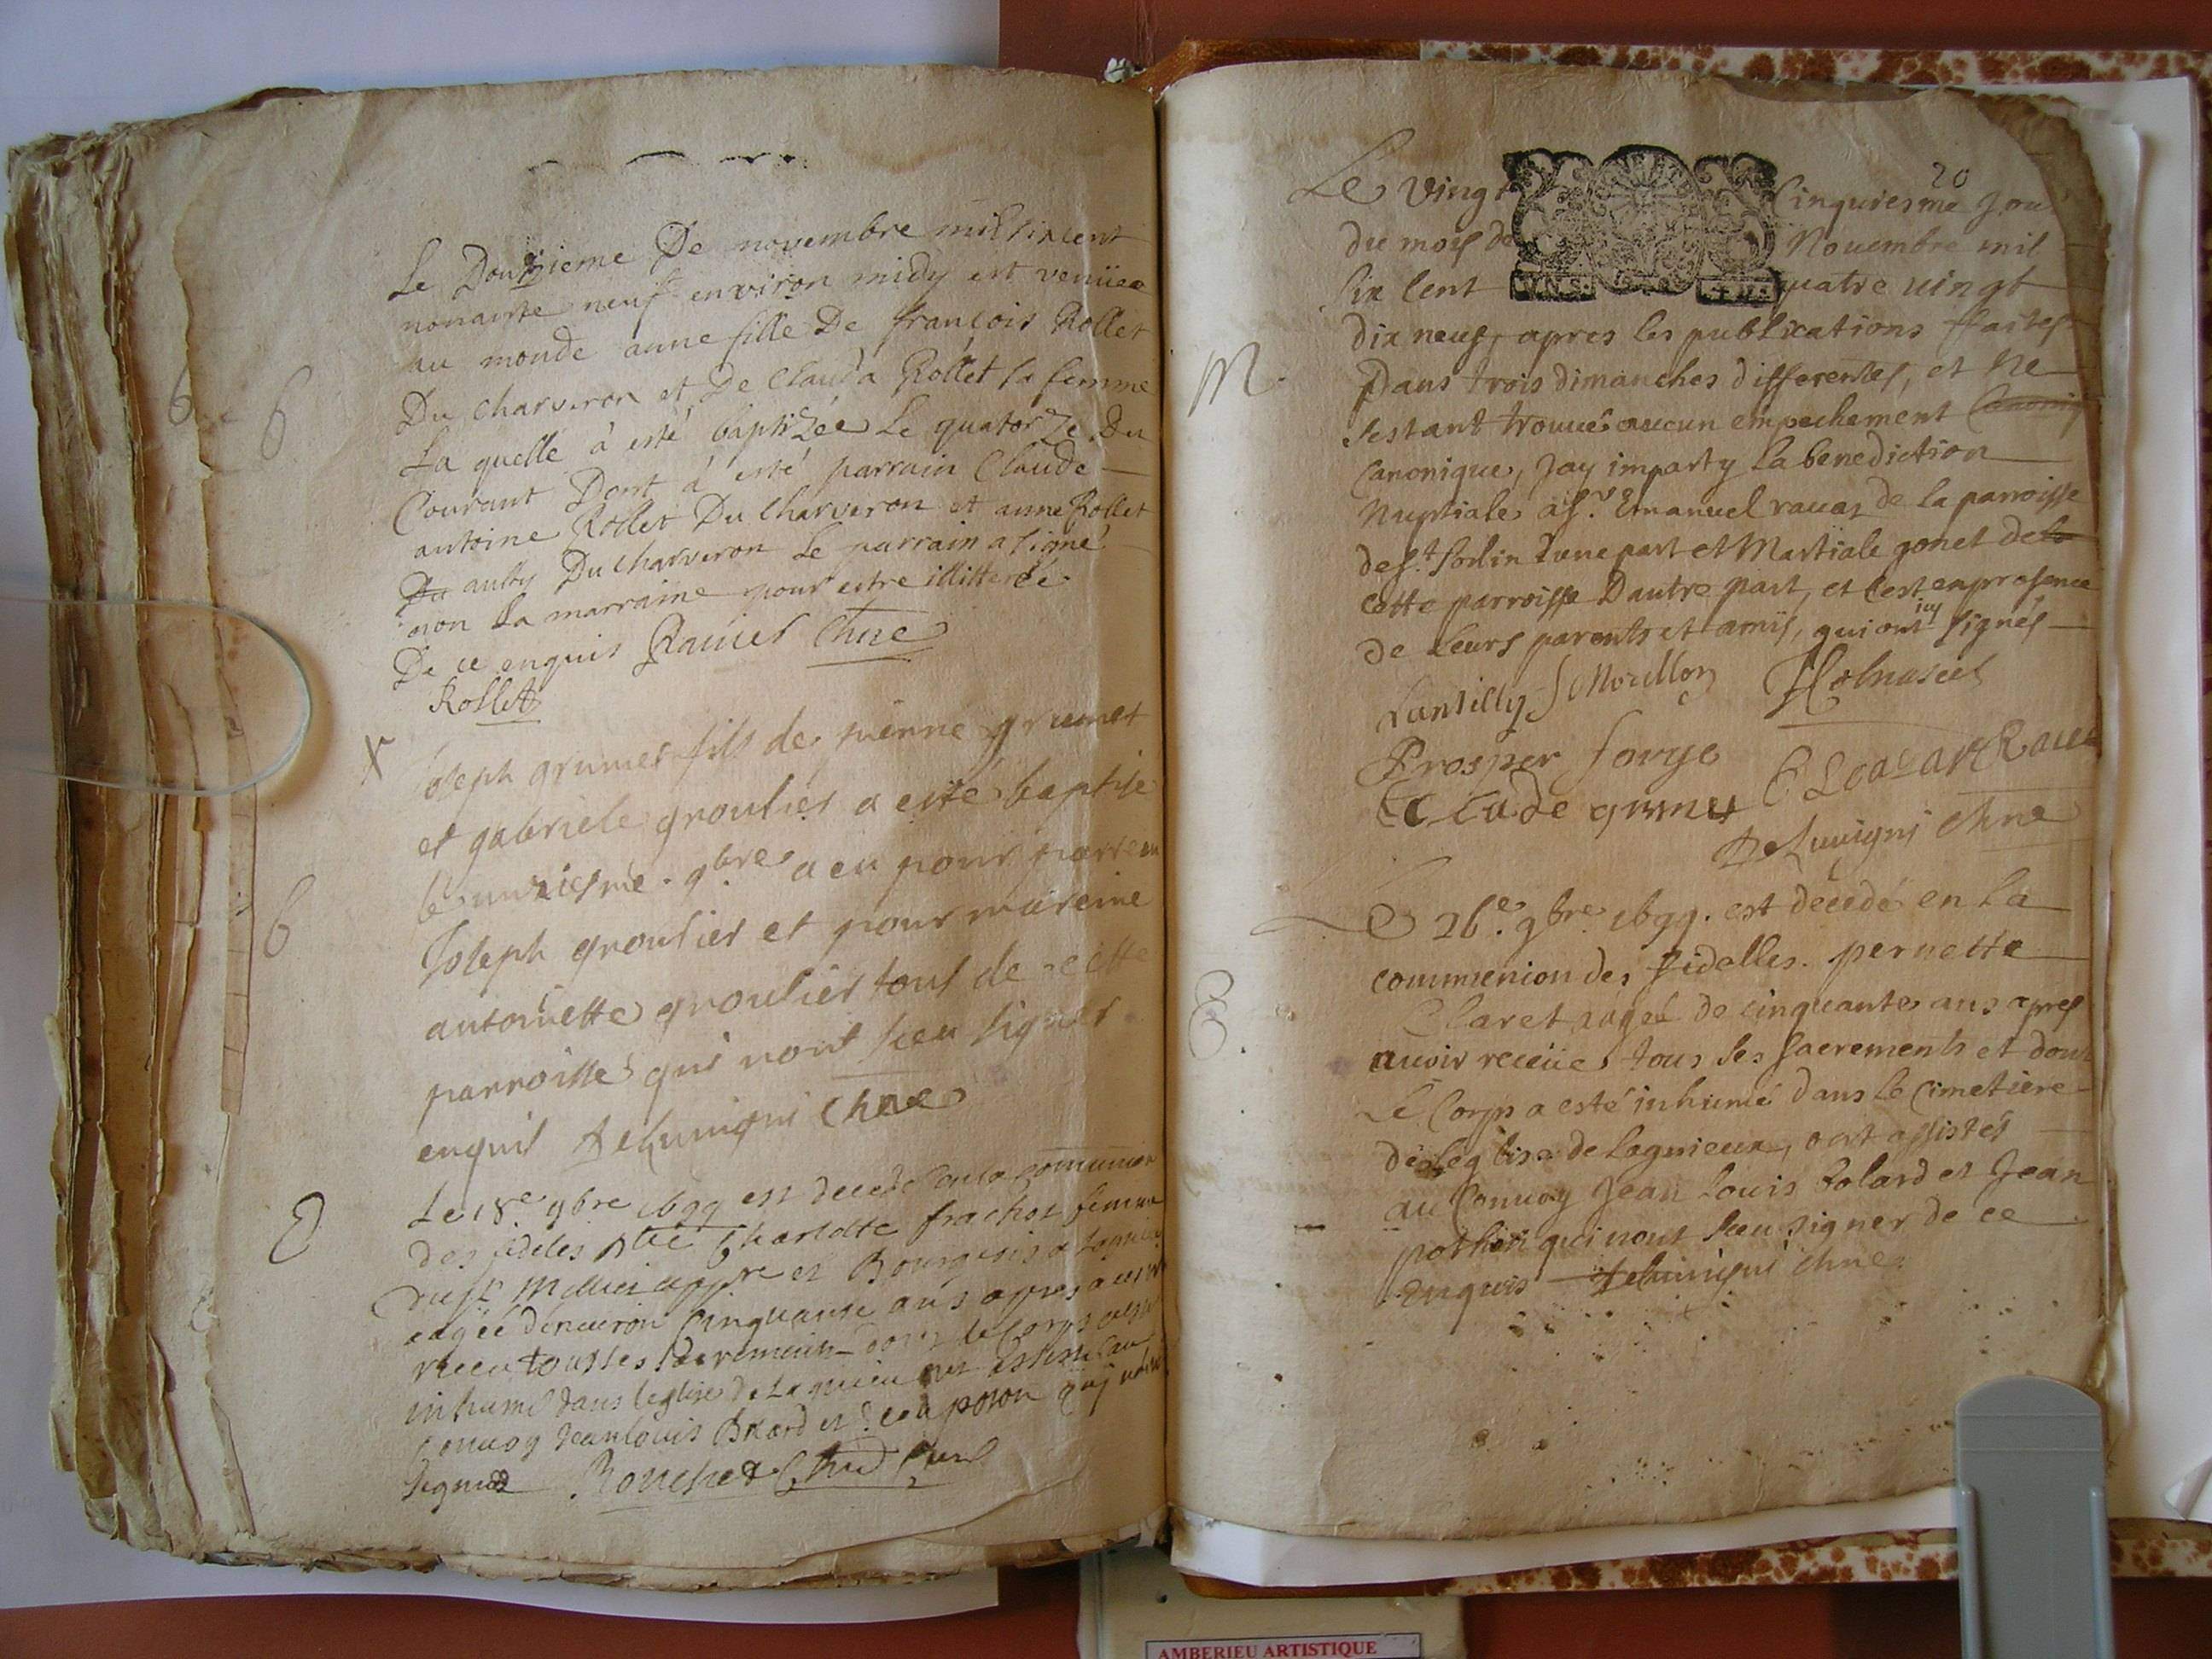 Le Douzieme De novembre mil six cent
nonante neuf environ midy est venüee
au monde anne fille De françois Rollet
Du charveron et De Clauda Rollet sa femme
La quelle à esté baptizée Le quatorze Du
Courant Dont à esté parrain Claude
antoine Rollet Du charveron et anne Rollet
Du aussy Du charveron Le parrain a signé
non La marraine pour estre illitterée
De ce enquis Ravier Chne
Rollet
B
X
Joseph grumet fils de pierre grumet
et gabriele groulier a esté baptise
le unziesme 9bre a eu pour parrein
Joseph groulier et pour mareine
antoinette groulier tous de cette
parroisse qui nont sceu signer
enquis Chne
B
Le 18e 9bre 1699 est decede en la communion
des fideles Charlotte frachot femme
du Sr et Bourgeois a
eagée denviron Cinquante ans apres avoir
receu tous les sacrements dont le Corps a esté
inhumé dans leglise de Lagnieu ont assisté au
convoy Jean louis et qui
signer Chne Curé
E
20
Le vingt Cinquiesme Jour
du mois de Novembre mil
six Cent quatre vingt
dix neuf, apres les publications faites
Dans trois dimanches differentes, et ne
sestant trouué aucun empechement
Canonique, Jay imparty la benediction
Nuptiale a sr. Emanuel ravat de la parroisse
de st. Sorlin d'une part et Martiale gonet de
cette parroisse Dautre part, et Cest en presence
de leurs parents et amis, qui ont icy signés
M.
Prosper
Claude grumet
Chne
Le 26e. 9bre 1699. est decedé en la
communion des fidelles. pernette
Claret aageé de cinquante ans apres
auoir receüe tous les sacrements et dont
Le Corps a esté inhumé dans le Cimetiere
de leglise de Lagnieux, ont assistés
au Convoy Jean Louis et Jean
pothon qui nont sceu signer de ce
enquis chne
E.
AMBERIEU ARTISTIQUE